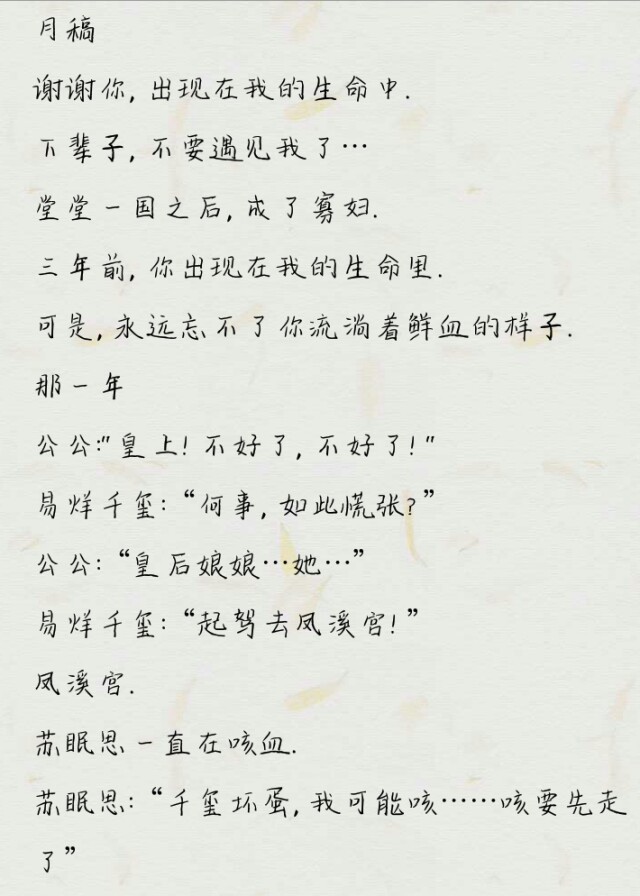 月稿
谢谢你,出现在我的生命中.
下辈子,不要遇见我了…
堂堂一国之后,成了寡妇.
三年前,你出现在我的生命里.
可是,永远忘不了你流淌着鲜血的样子.
那一年
公公:"皇上!不好了,不好了!"
易烊千玺:“何事,如此慌张?”
公公:“皇后娘娘…她…”
易烊千玺:“起驾去凤溪宫!”
凤溪宫.
苏眠思一直在咳血.
苏眠思:“千玺坏蛋,我可能咳……咳要先走
了”